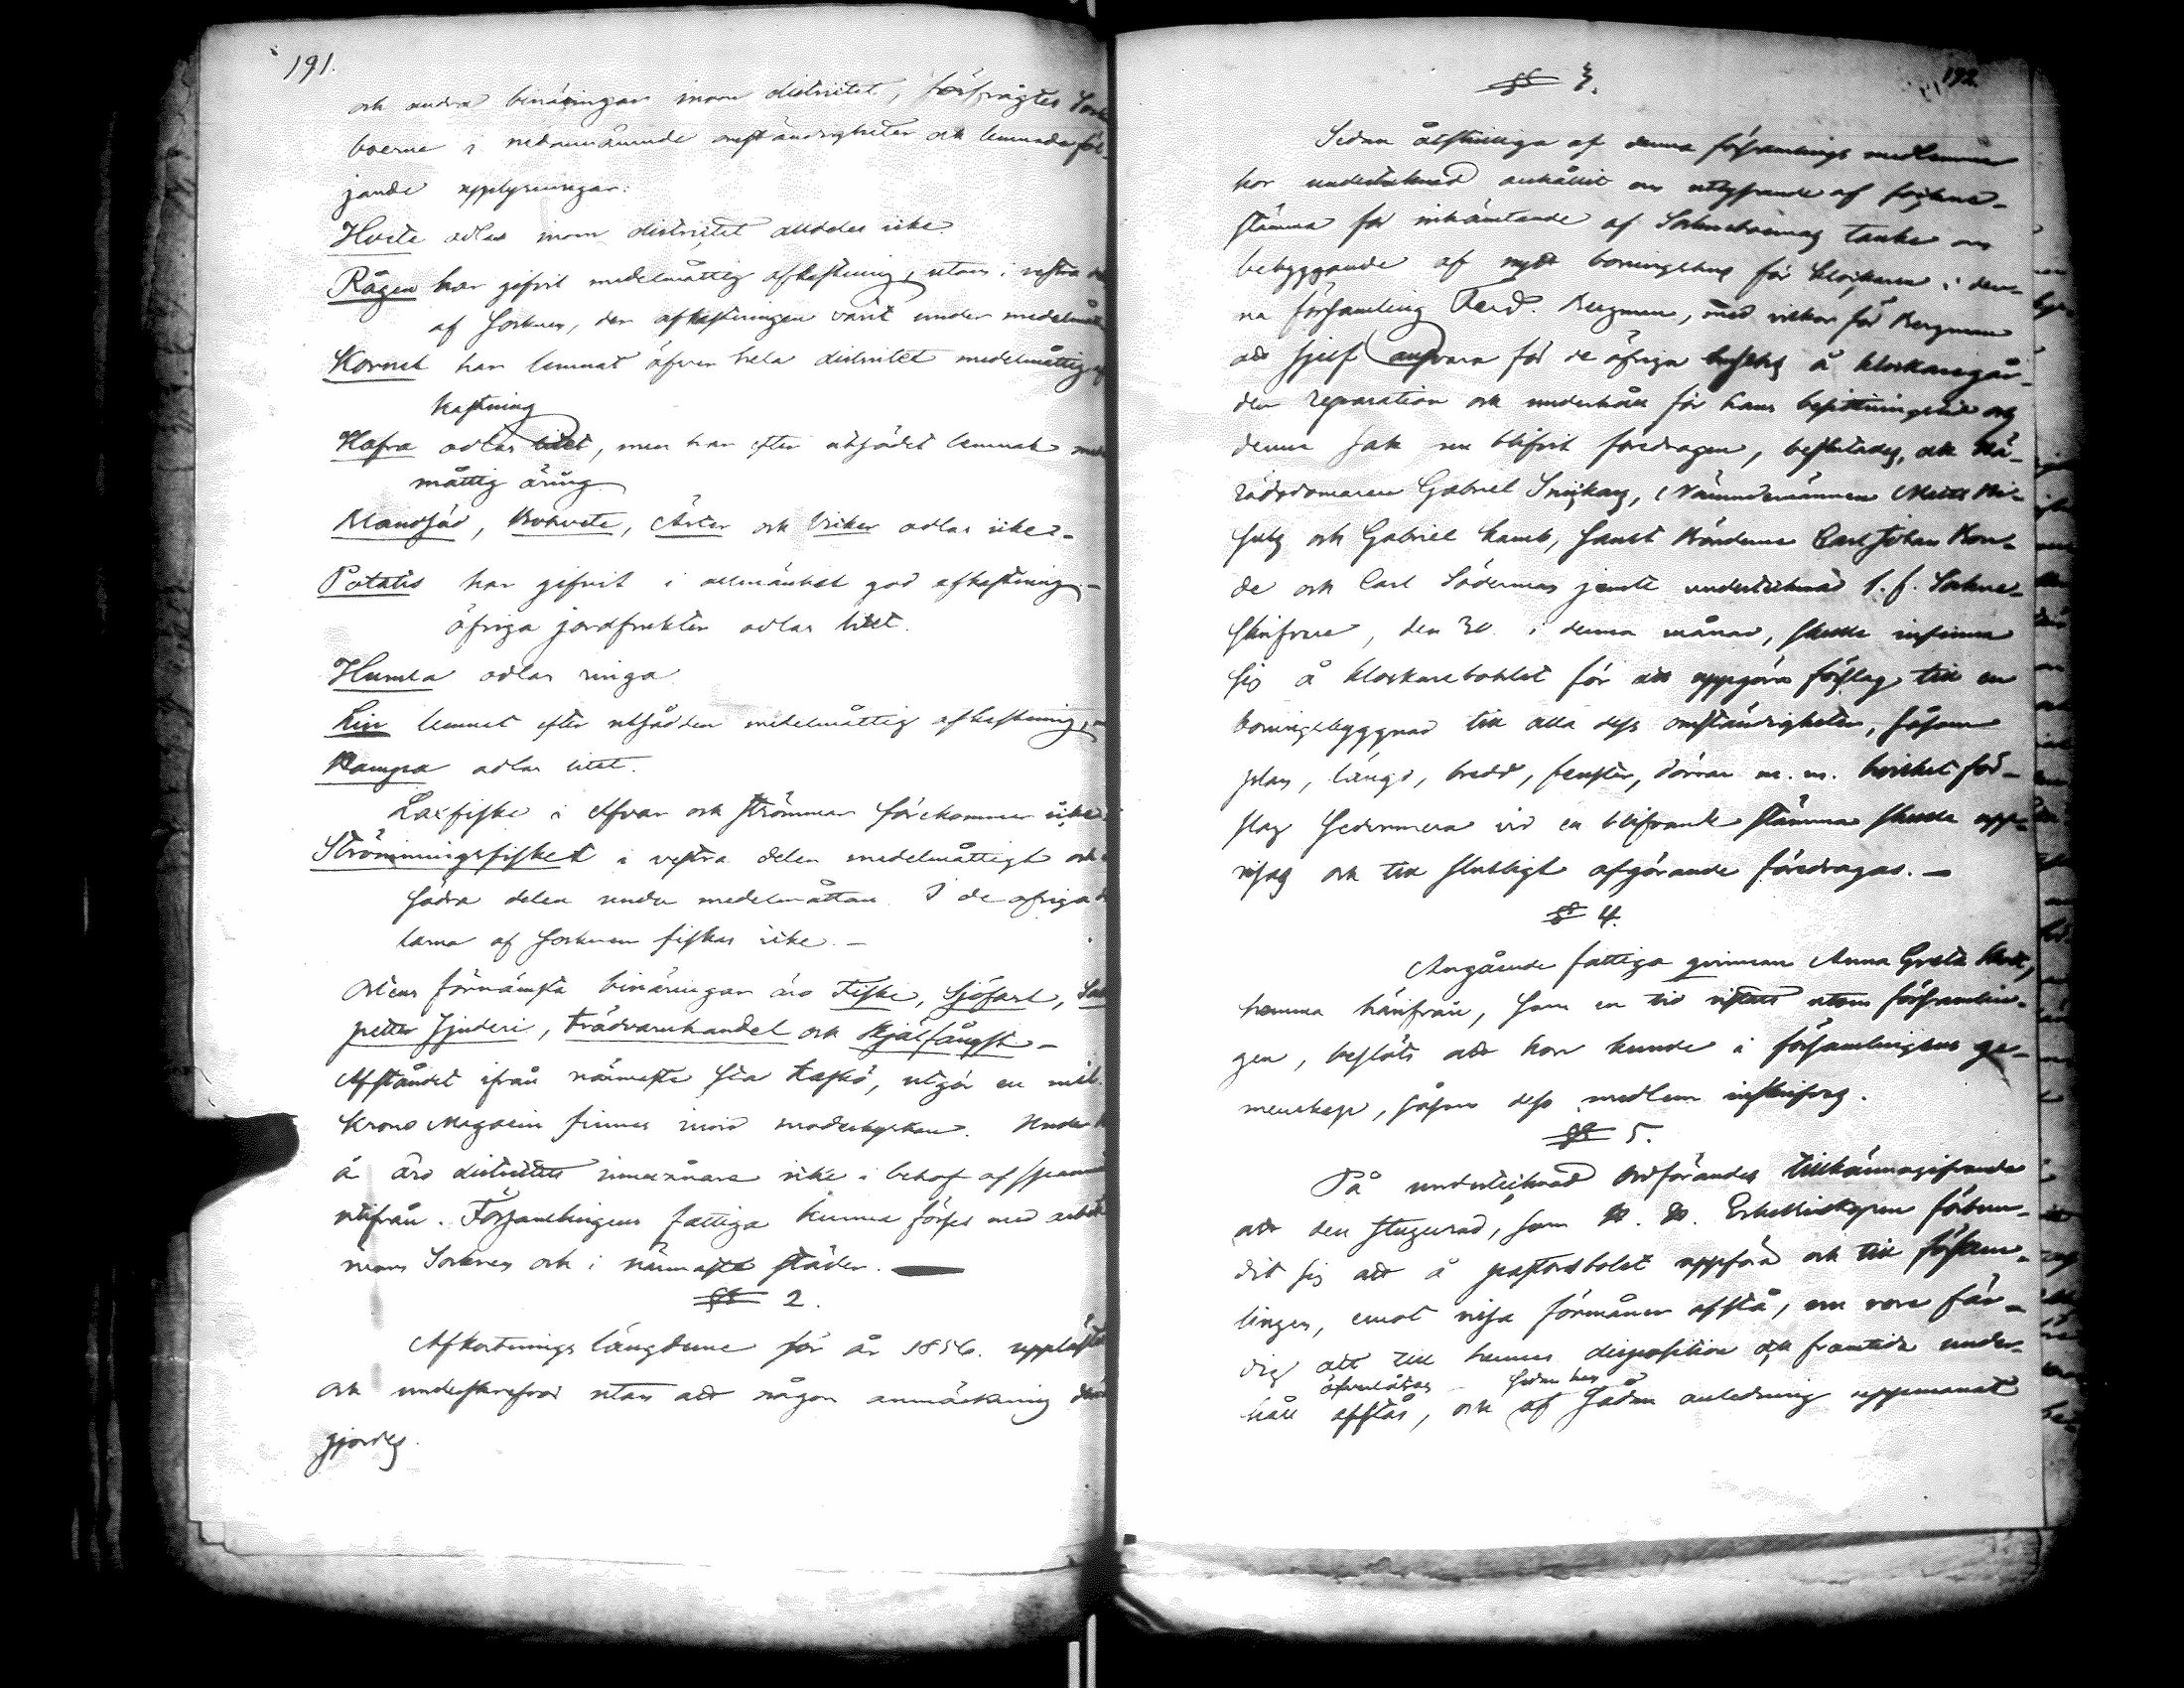 191.
och andra binäringar inom distriktet, förfrågtes Sock
boerne i nedannämnde omständigheter och lemnade föl-
jande upplysningar:
Hvete odlas inom distriktet alldeles icke.
Rågen har gifvit medelmåttig afkastning, utom i vestra
af Socknen, der afkastningen varit under medelmått
Kornet har lemnat öfver hela distriktet medelmåttig af
kastning
Hafra odlas litet, men har efter utsädet lemnat med
måttig äring
Blandsäd, Bohvete, Ärter och Viker odlas icke.-
Potatis har gifvit i allmänhet god afkastning.-
öfriga jordfrukter odlas litet.
Humla odlas ringa
Lin lemnat efter utsädden medelmåttig afkastning.-
Hampa odlas litet.
Laxfiske i Elfvar och Strömmar förekommer icke
Strömmingsfisket i vestra delen medelmåttigt och
södra delen under medelmåttan. I de öfriga de
larna af Socknen fiskas icke.-
Ortens förnämsta binäringar äro Fiske, Sjöfart, Sal
petter Sjuderi, trädvaruhandel och Skjälfångst.-
Afståndet ifrån närmaste Stad Kaskö, utgör en mil.
Krono Magasin finnes invid moderkyrkan. Under
å äro distriktets innevånare icke i behof af spanmål
utifrån. Församlingens fattiga kunna förses med arbete
inom Socknen och i närmaste städer.
§ 2.
Afkortnings längderne för år 1856. upplästes
och underskrefvos utan att någon anmärkning
gjordes.
192.
§ 3.
Sedan åtskilliga af denna församlings medlemmar
hos undertecknad anhållit om utlysande af sockne-
stämma för inhämtande af Socknebornas tanke om
bebyggande af nytt boningshus för klockaren i den-
na församling Ferd. Bergman, med vilkor för Bergman
att sjelf ansvara för de öfriga husens å klockaregår-
den reparation och underhåll för hans besittningstid och
denna sak nu blifvit föredragen, beslutades, att Hä-
radsdomaren Gabriel Snickars, Nämndemännen Matts
och Gabriel Lamb, samt Bönderne Carl Johan
och Carl Söderman jemte undertecknad t. f. Sockne-
skrifvare, den 30. i denna månad, skulle infinna
sig å klockarebohlet för att uppgöra förslag till en
boningsbyggnad till alla dess omständigheter, såsom
plan, längd, bredd, fenster, dörrar m. m. hvilket för-
slag sedermera vid en blifvande stämma skulle upp-
visas och till slutligt afgörande föredragas.-
§ 4.
Angående fattiga qvinnan Anna Greta
hemma härifrån, som en tid vistats utom församlin-
gen, beslöts att hon kunde i församlingens ge-
menskap, såsom dess medlem inskrifvas.
§ 5.
På undertecknad Ordförandes tillkännagifvande
att den stugurad, som förbun-
dit sig att å pastorsbolet uppföra och till försam-
lingen, emot vissa förmåner afstå, nu vore fär-
dig att till hennes disposition och framtida under-
öfverlåtas sedan han
håll afstås, och af sådan anledning uppmanat